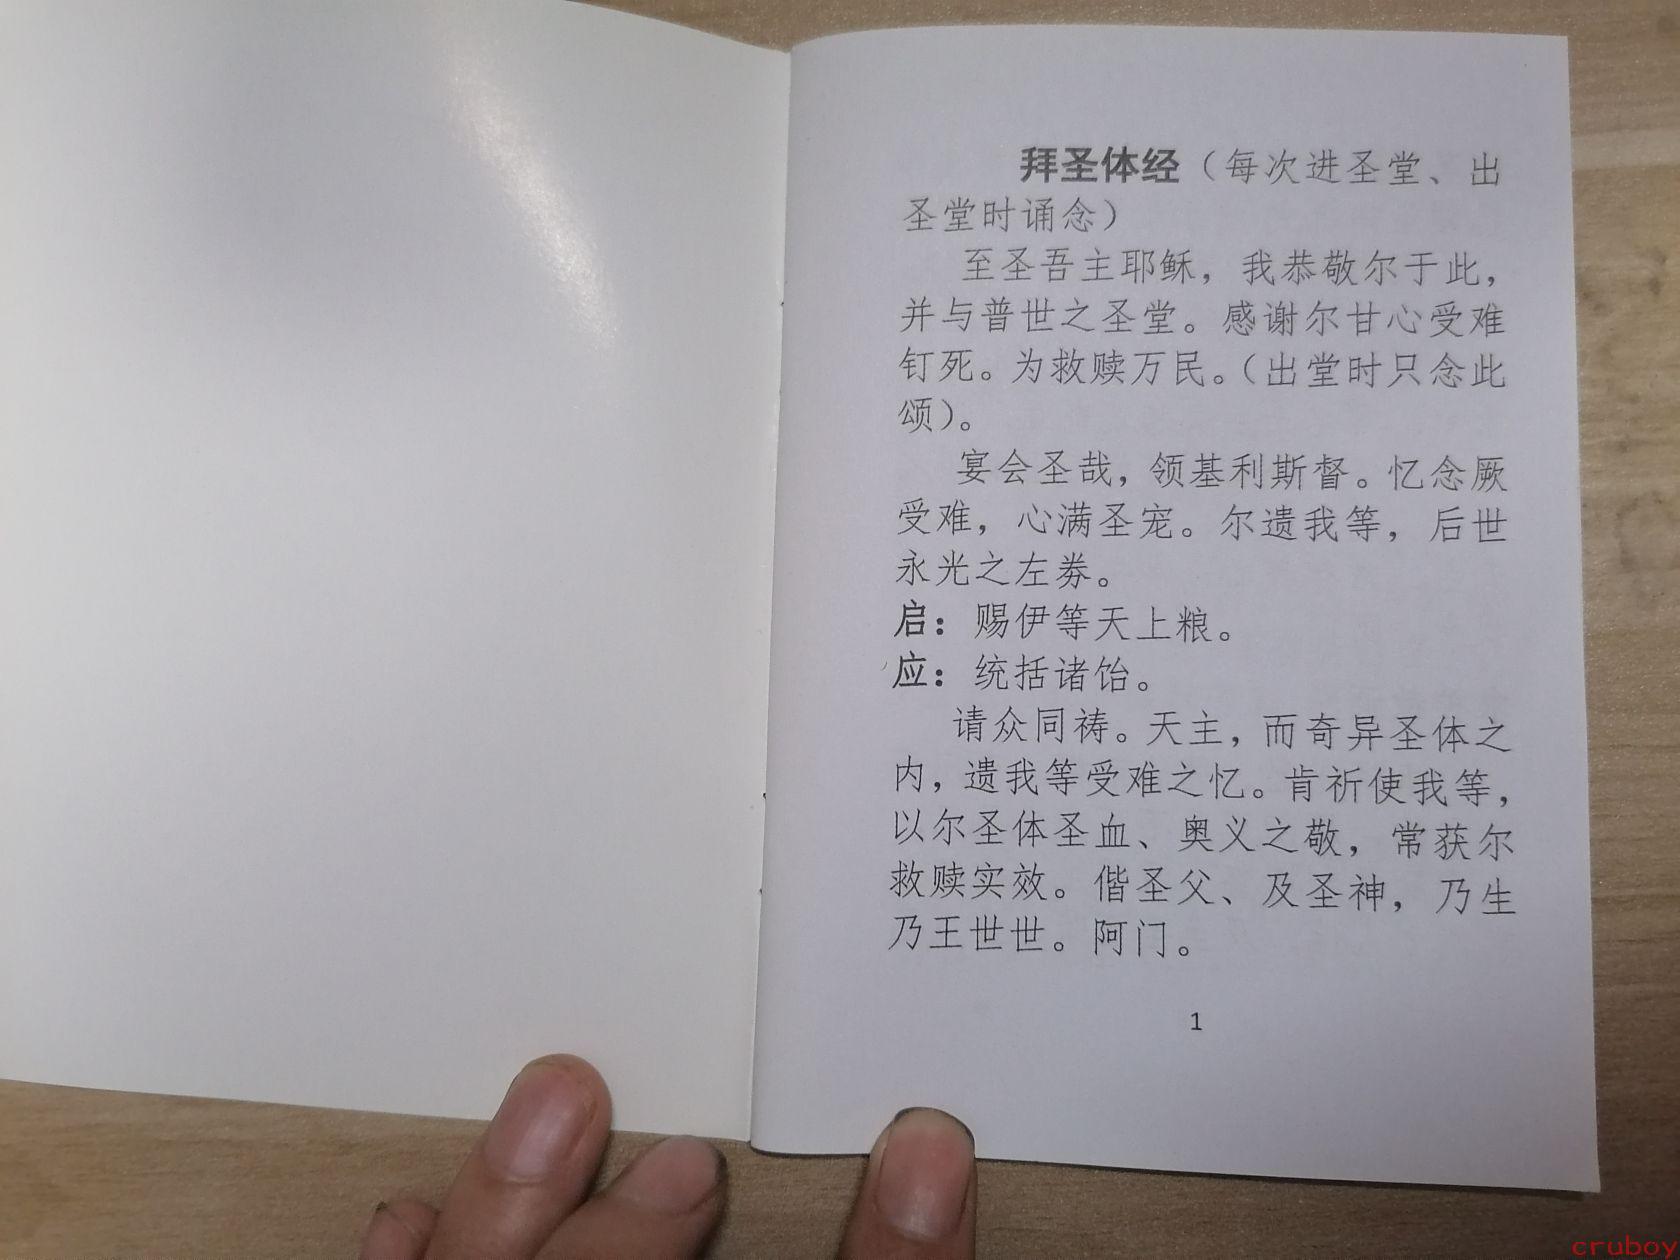 拜圣体经（每次进圣堂、出
圣堂时诵念）
至圣吾主耶稣，我恭敬尔于此，
并与普世之圣堂。感谢尔甘心受难
钉死。为救赎万民。（出堂时只念此
颂）。
宴会圣哉，领基利斯督。忆念厥
受难，心满圣宠。尔遗我等，后世
永光之左券。
启：赐伊等天上粮。
应：统括诸饴。
请众同祷。天主，而奇异圣体之
内，遗我等受难之忆。肯祈使我等，
以尔圣体圣血、奥义之敬，常获尔
救赎实效。偕圣父、及圣神，乃生
乃王世世。阿门。
1
cruboy